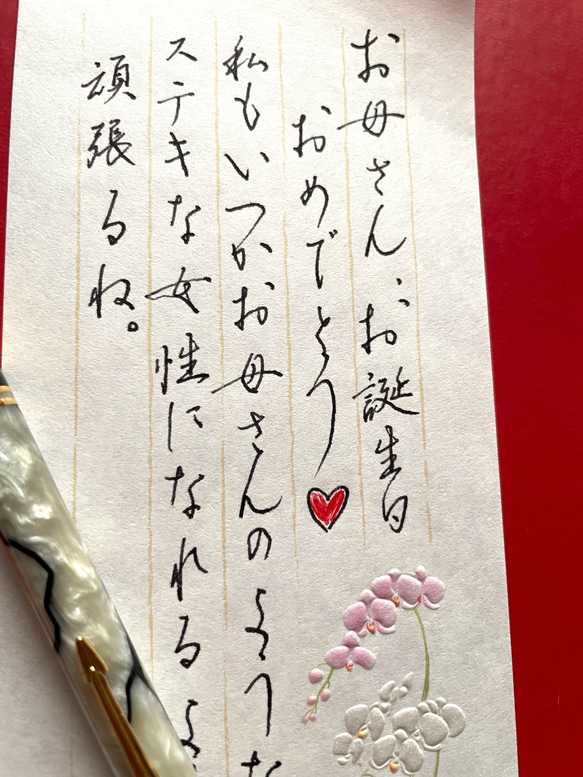 お母さん、お誕生日
おめでとう
私もいつかお母さんのような
ステキな女性になれるよ
頑張るね。